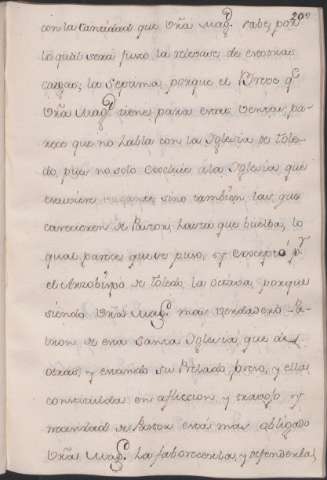 200
con la cantidad que Vrã Magd. sabe, por
lo qual será justo la relevase de estotras
cargas; la septima porque el Breve qe.
Vrã Magd. tiene para estas ventas, pa-
rece que no habla con la Iglesia de Tole-
do, pues no solo excluie a la Iglesia que
estuviere vacante, sino tambien las que
carecieren de Pastor, hasta que buelba, lo
qual parece que se puso, y exceptó pr.
el Arzobispo de Toledo, la octava, porque
siendo Vrã Magd. mas verdadero Pa-
tron de esta Santa Iglesia, que de
otras, y estando su Prelado preso, y ella
constituida en afliccion, y trabajo, y
necesidad de Pastor está mas obligado
Vrã Magd. a faborecerla, y defenderla,